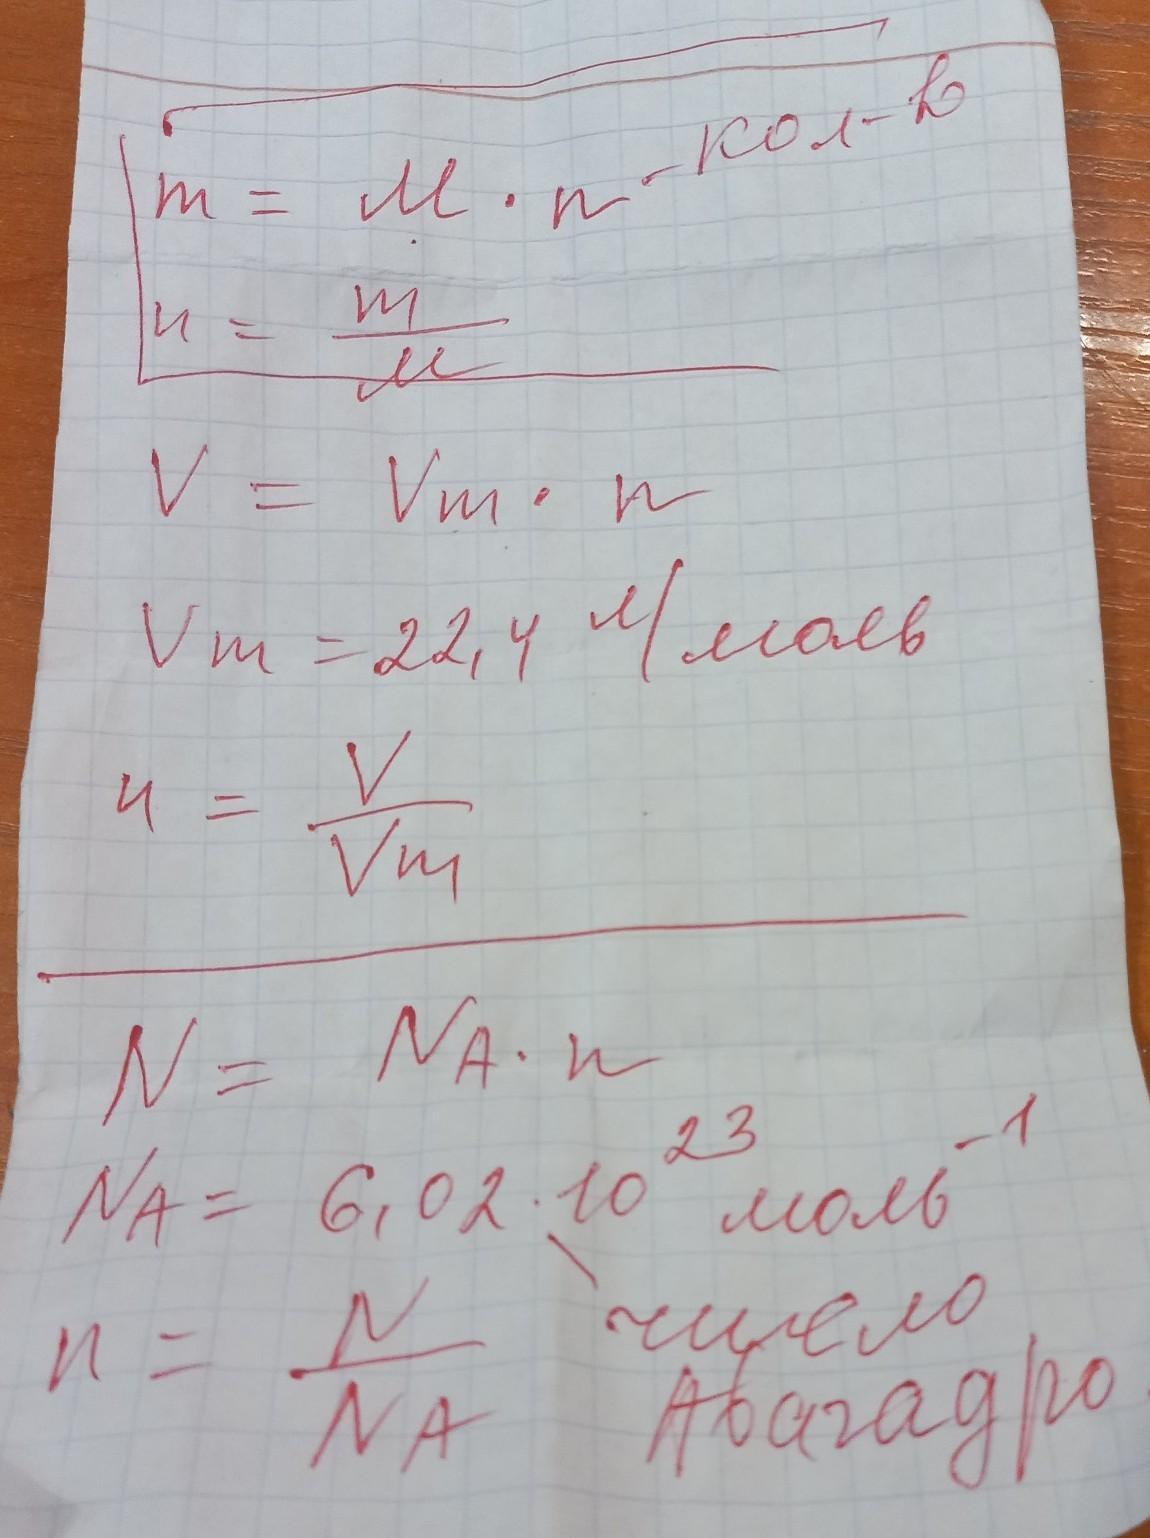 m = M · n - кол-в
n = m/M
V = Vm · n
Vm = 22,4 л/моль
n = V/Vm
N = NA · n
NA = 6,02 · 10²³ моль⁻¹
n = N/NA число
Авагадро